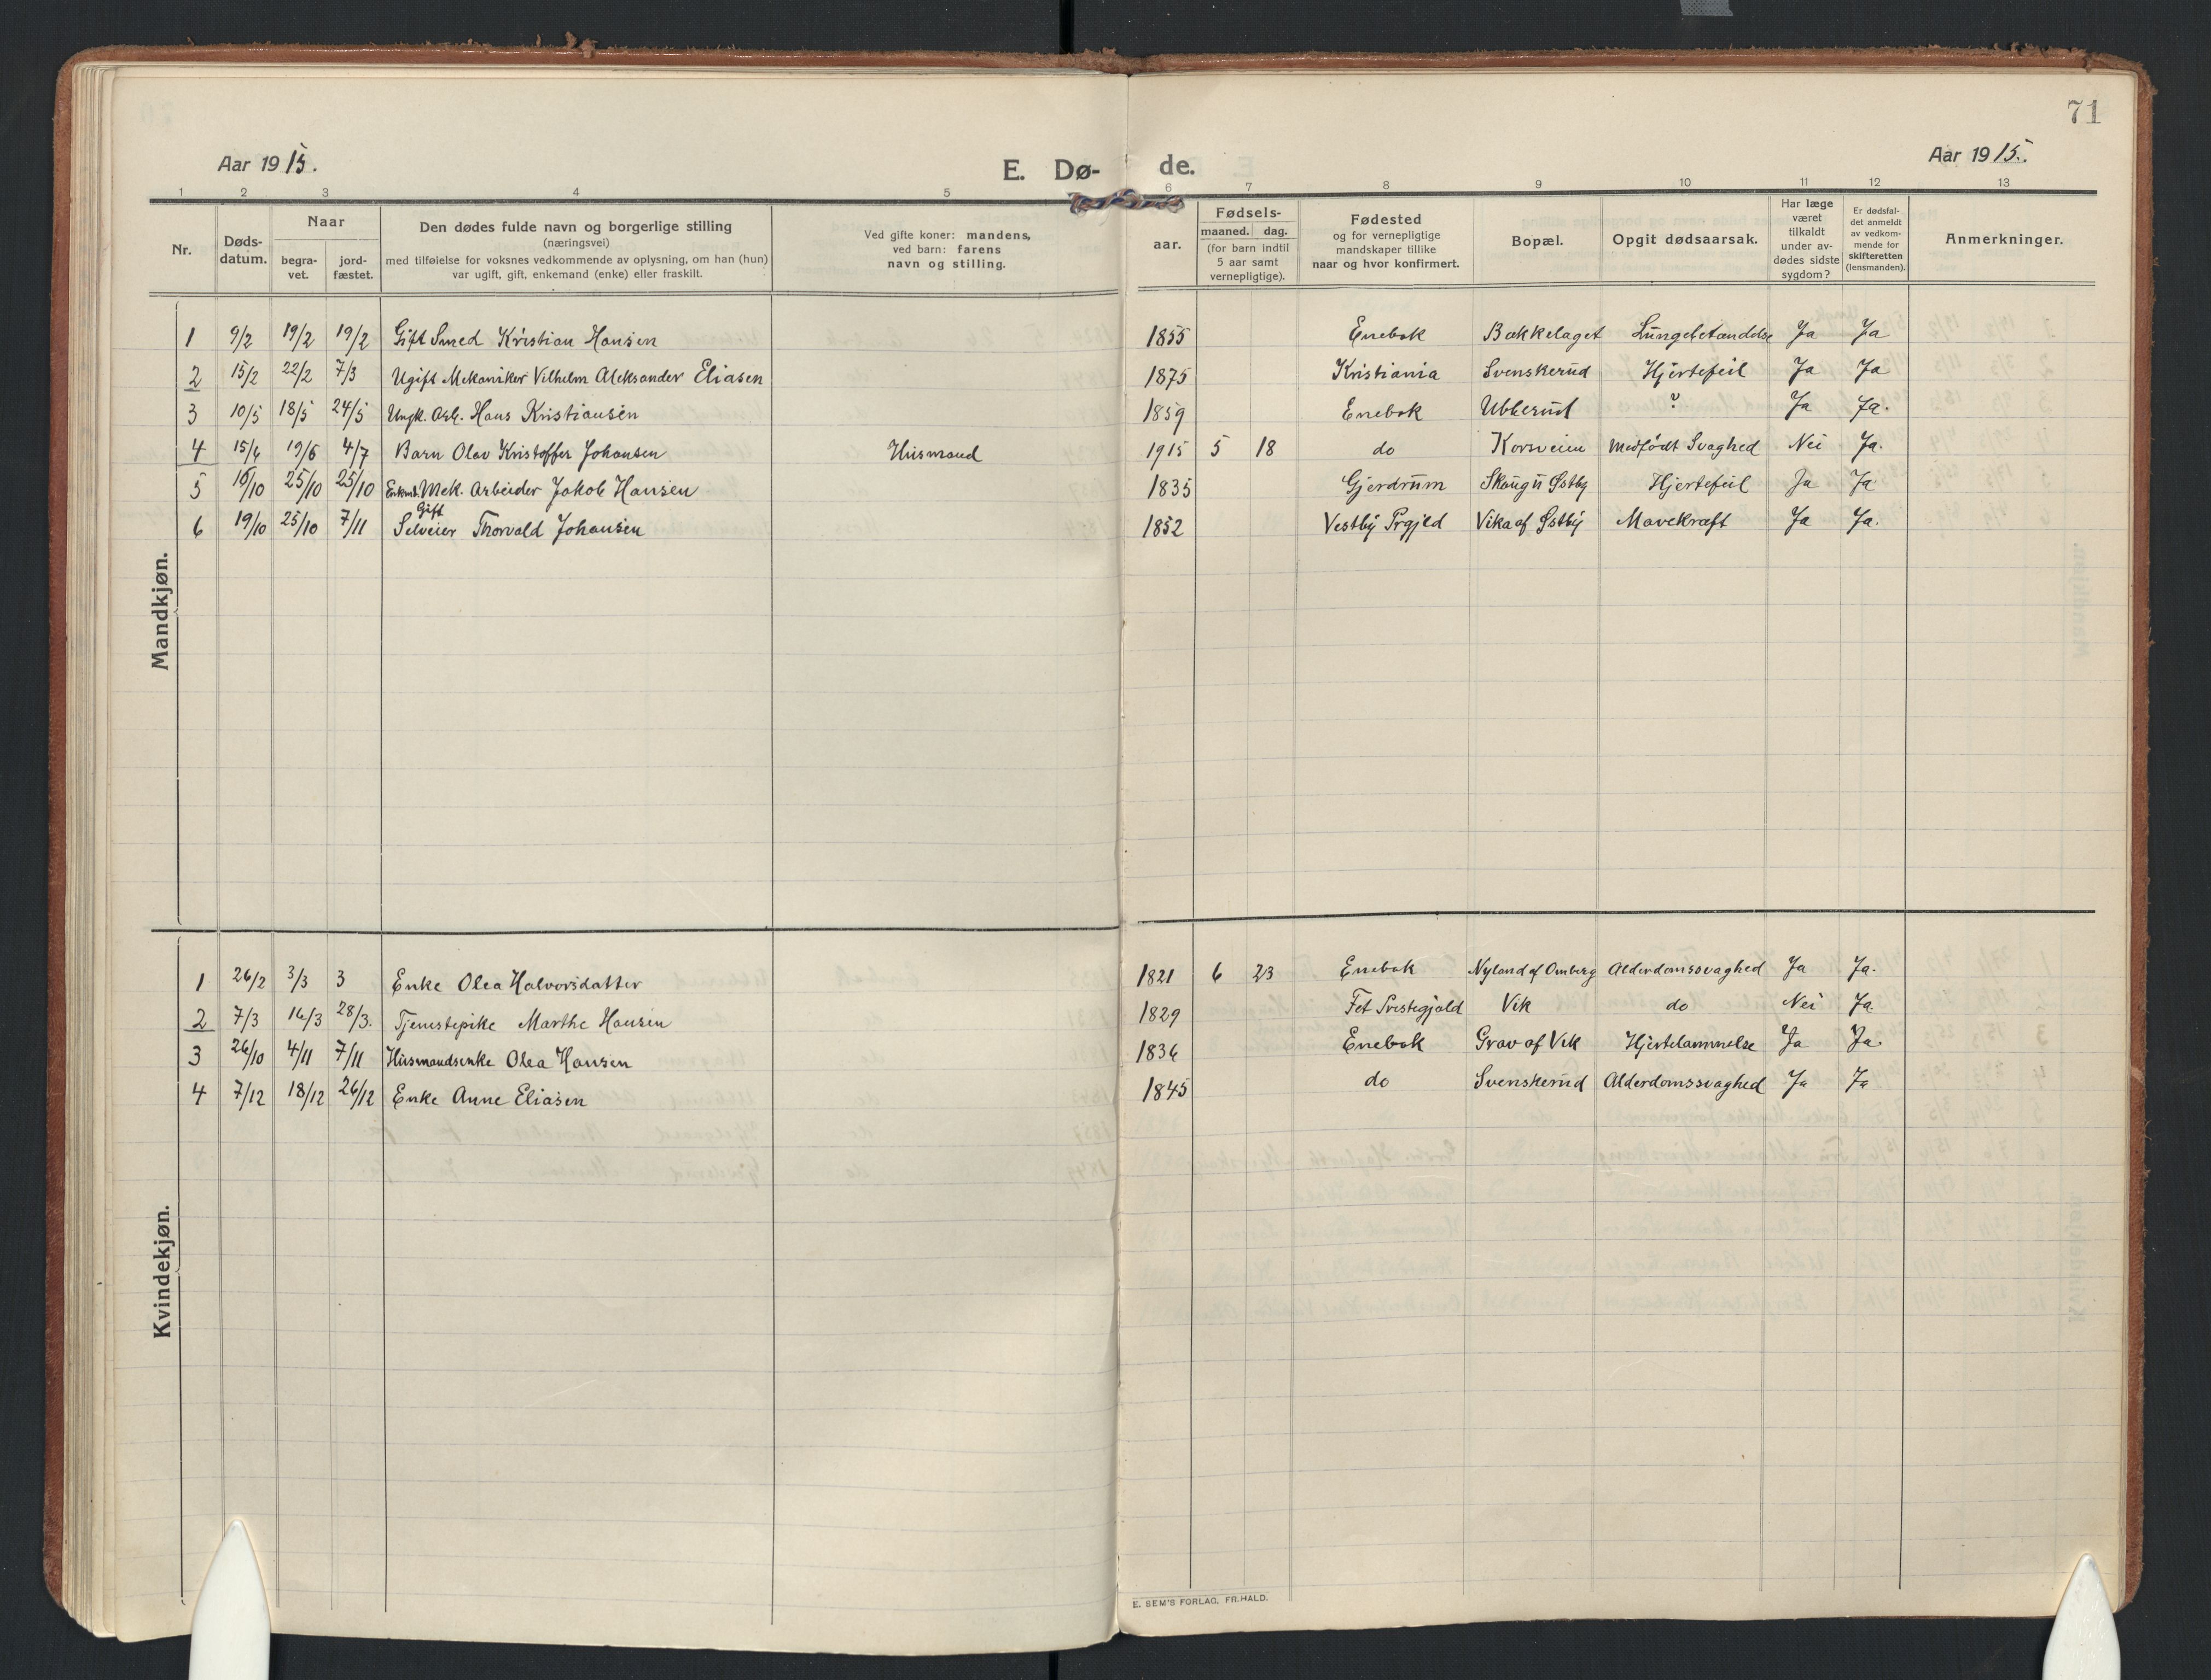 71
Aar 1915.
E. Dø- de.
Aar 1915.
1 2 3 4 5 6 7 8 9 10 11 12 13
Nr.
Døds-
datum.
Naar
begra-
vet.
jord-
fæstet.
Den dødes fulde navn og borgerlige stilling
(næringsvei)
med tilføielse for voksnes vedkommende av oplysning, om han (hun)
var ugift, gift, enkemand (enke) eller fraskilt.
Ved gifte koner: mandens,
ved barn: farens
navn og stilling.
aar.
Fødsels-
maaned. dag.
(for barn indtil
5 aar samt
vernepligtige).
Fødested
og for vernepligtige
mandskaper tillike
naar og hvor konfirmert.
Bopæl.
Opgit dødsaarsak.
Har læge
været
tilkaldt
under av-
dødes sidste
sygdom?
Er dødsfal-
det anmeldt
av vedkom-
mende for
skifteretten
(lensmanden).
Anmerkninger.
Mandkjøn.
1 9/2 19/2 19/2 Gift Smed Kristian Hansen 1855 Enebak Bækkelaget Lungebetændelse Ja Ja
2 15/2 22/2 7/3 Ugift Mekaniker Vilhelm Aleksander Eliasen 1875 Kristiania Svenskerud Hjertefeil Ja Ja
3 10/5 18/5 24/5 Ungk. Arb. Hans Kristiansen 1859 Enebak Ubberud ? Ja Ja.
4 15/6 19/6 4/7 Barn Olav Kristoffer Johansen Husmand 1915 5 18 do Korsveien Medfødt Svaghed Nei Ja.
5 16/10 25/10 25/10 Enkmd. Mek. Arbeider Jakob Hansen 1835 Gjerdrum Skaug u Østby Hjertefeil Ja Ja
Gift
6 19/10 25/10 7/11 Selveier Thorvald Johansen 1852 Vestby Prgjld Vika af Østby Mavekræft Ja Ja.
Kvindekjøn.
1 26/2 3/3 3 Enke Olea Halvorsdatter 1821 6 23 Enebak Nyland af Omberg Alderdomssvaghed Ja Ja.
2 7/3 16/3 28/3. Tjenestepike Marthe Hansen 1829 Fet Prestegjæld Vik do Nei Ja
3 26/10 4/11 7/11 Husmandsenke Olea Hansen 1836 Enebak Grav af Vik Hjertelammelse Ja Ja.
4 7/12 18/12 26/12 Enke Anne Eliasen 1845 do Svenskerud Alderdomssvaghed Ja Ja
E. SEM'S FORLAG, FR.HALD.